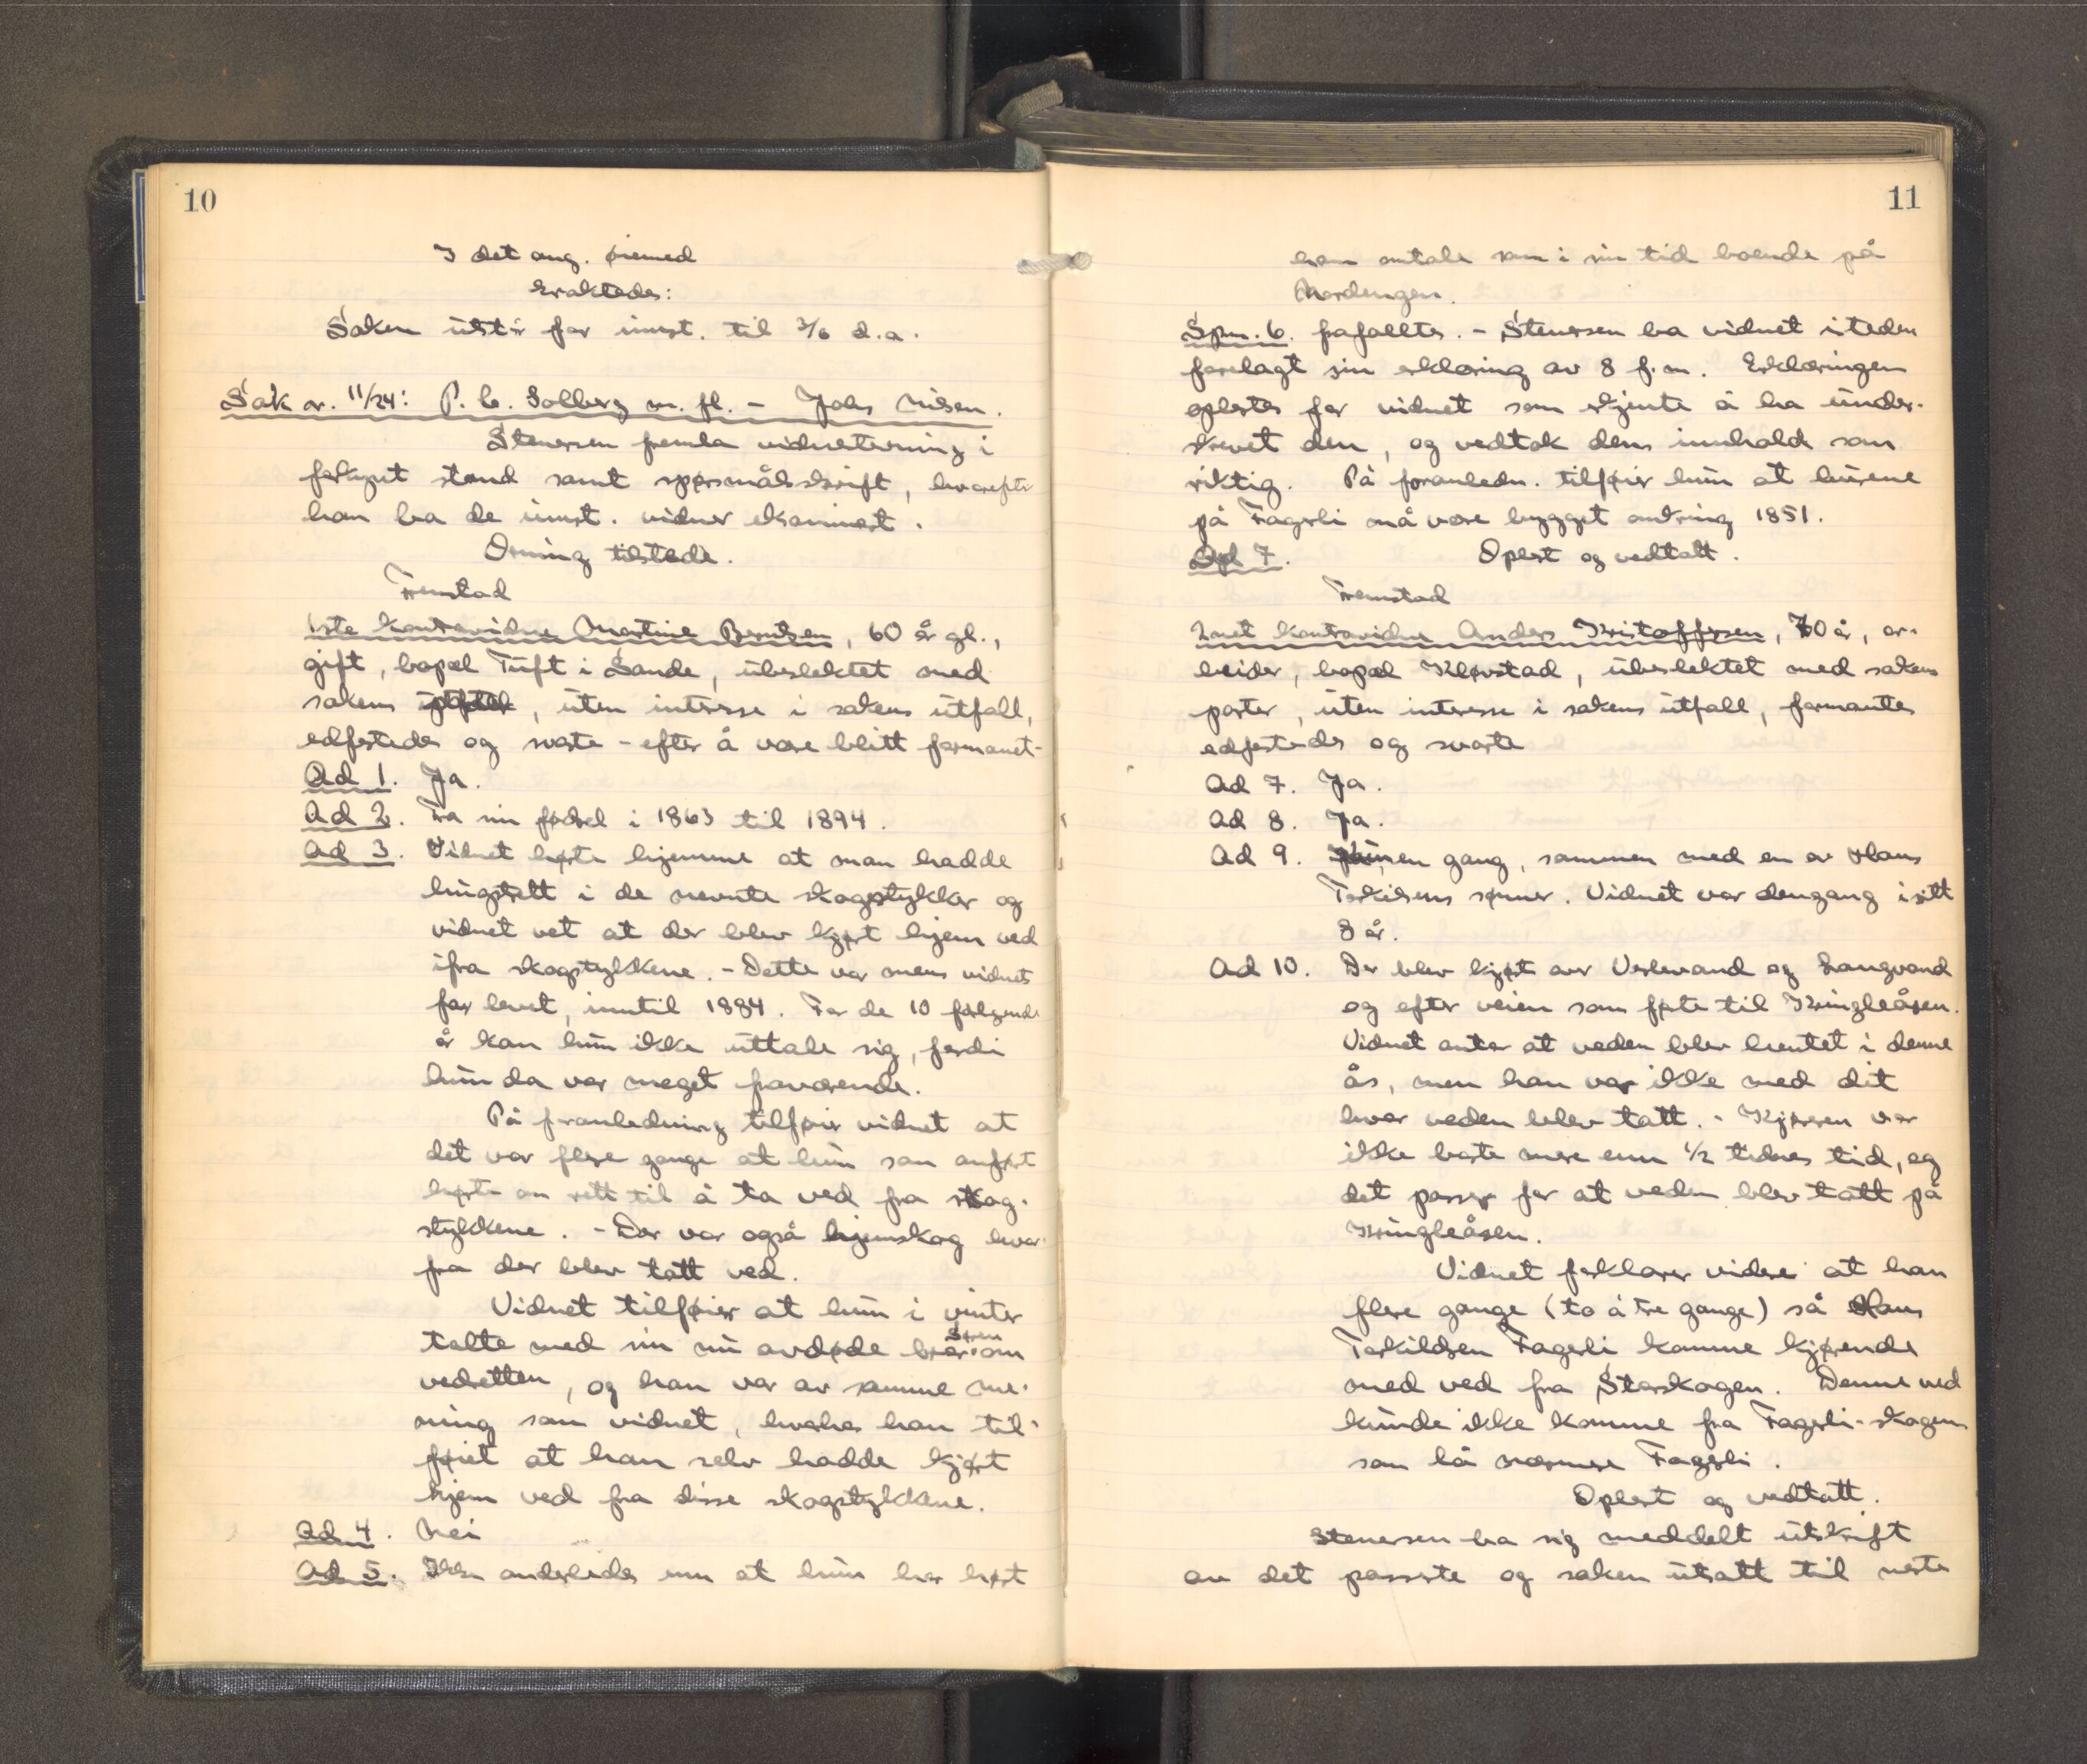 10
I det ang. øiemed
Eraktedes:
Saken utstår for innst. til 3/6 d.a.
Sak nr. 11/24: P. C. Solberg m. fl. – Johs Nilsen.
Stenersen fremla vidnestevning i
forkynt stand samt spørsmålsskrift, hvorefter
han ba de innst. vidner eksaminert.
Orning tilstede.
Fremstod
1ste kontravidne Martine Berntsen, 60 år gl.,
gift, bopæl Tuft i Sande, ubeslektet med
sakens, uten interesse i sakens utfall,
edfestedes og svarte – efter å være blitt formanet –
Ad 1. Ja.
Ad 2. Fra sin fødsel i 1863 til 1894.
Ad 3. Vidnet hørte hjemme at man hadde
hugstrett i de nevnte skogstykker og
vidnet vet at der blev kjørt hjem ved
ifra skogstykkene. – Dette var mens vidnets
far levet, inntil 1884. For de 10 følgende
år kan hun ikke uttale sig, fordi
hun da var meget fraværende.
På foranledning tilføier vidnet at
det var flere gange at hun som anført
hørte om rett til å ta ved fra skog-
stykkene. – Der var også hjemskog hvor-
fra der blev tatt ved.
Vidnet tilføier at hun i vinter
talte med sin nu avdøde bror Søren om
vedretten, og han var av samme me-
ning som vidnet, hvorhos han til-
føiet at han selv hadde kjørt
hjem ved fra disse skogstykkene.
Ad 4. Nei
Ad 5. Ikke anderledes enn at hun har hørt
11
ham omtale som i sin tid boende på
Nordengen.
Spm. 6. frafalltes. – Stenersen ba vidnet isteden
forelagt sin erklæring av 8 f.m. Erklæringen
oplestes for vidnet som erkjente å ha under-
skrevet den, og vedtok dens innhold som
riktig. På foranledn. tilføier hun at husene
på Fagerli må være bygget omkring 1851.
Ad 7. Oplest og vedtatt.
Fremstod
2net kontravidne Anders Kristoffersen, 70 år, ar-
beider, bopæl Kløvstad, ubeslektet med sakens
parter, uten interesse i sakens utfall, formantes
edfestedes og svarte
Ad 7. Ja.
Ad 8. Ja.
Ad 9. en gang, sammen med en av Hans
Torkilsens sønner. Vidnet var dengang i sitt
8 år.
Ad 10. Der blev kjørt over Veslevand og Langvand
og efter veien som førte til Kringleåsen.
Vidnet antar at veden blev hentet i denne
ås, men han var ikke med dit
hvor veden blev tatt. – Kjøreren var
ikke borte mere enn 1/2 times tid, og
det passer for at veden blev tatt på
Kringleåsen.
Vidnet forklarer videre at han
flere gange (to à tre gange) så Hans
Torkildsen Fagerli komme kjørende
med ved fra Storskogen. Denne ved
kunde ikke komme fra Fagerli-skogen
som lå nærmere Fagerli.
Oplest og vedtatt.
Stenersen ba sig meddelt utskrift
av det passerte og saken utsatt til neste